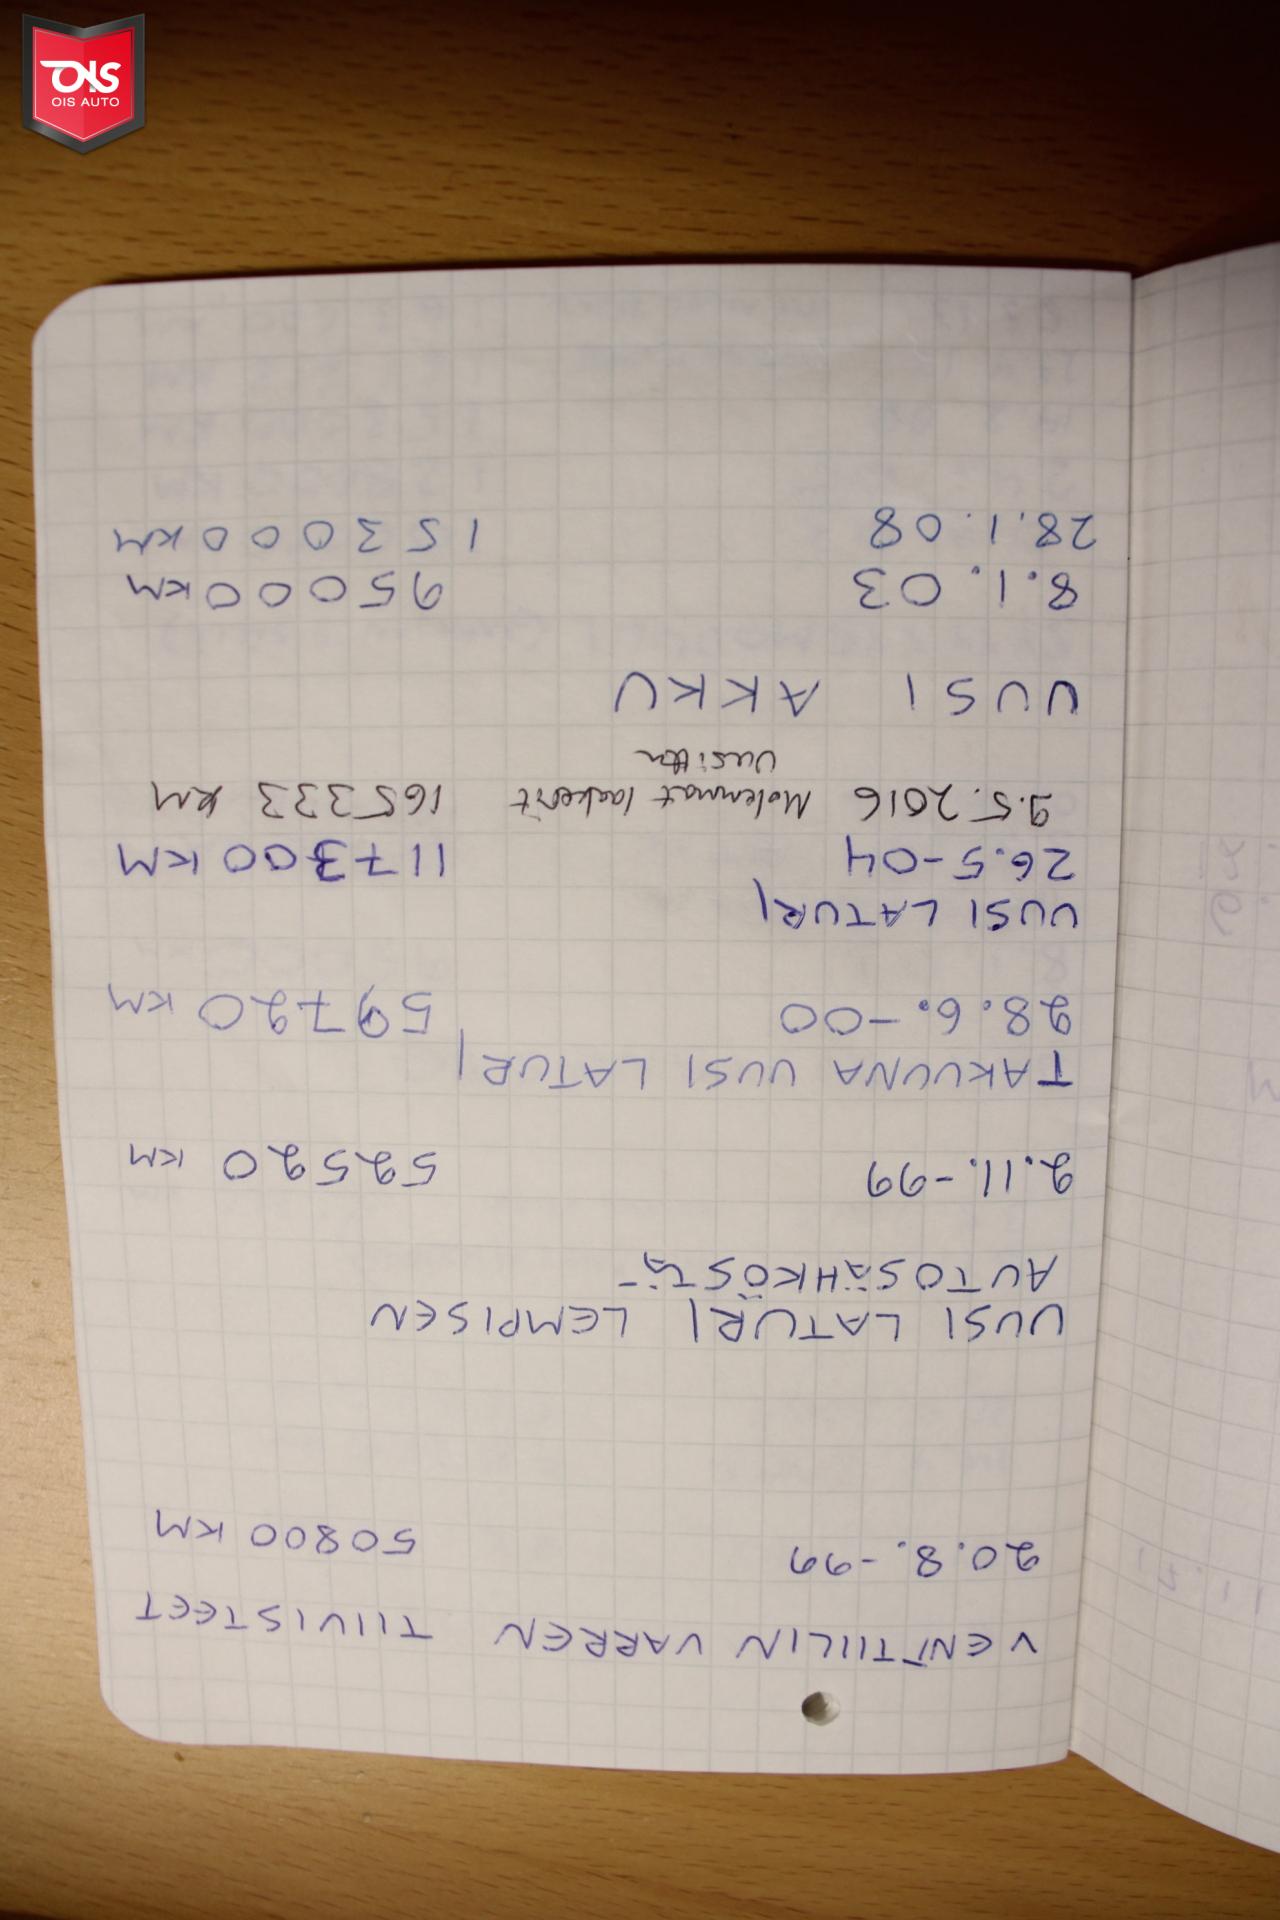 OIS
OIS AUTO
VENTTIILIN VARREN TIIVISTEET
20.8.-99 50800 KM
UUSI LATURI LEMPISEN
AUTOSÄHKÖSTÄ-
2.11.-99 52520 KM
TAKUUNA UUSI LATURI
28.6.-00 59720 KM
UUSI LATURI
26.5-04 117300 KM
9.5.2016 Molemmat 165333 KM
Uusittu
UUSI AKKU
8.1.03 95000 KM
28.1.08 153000 KM